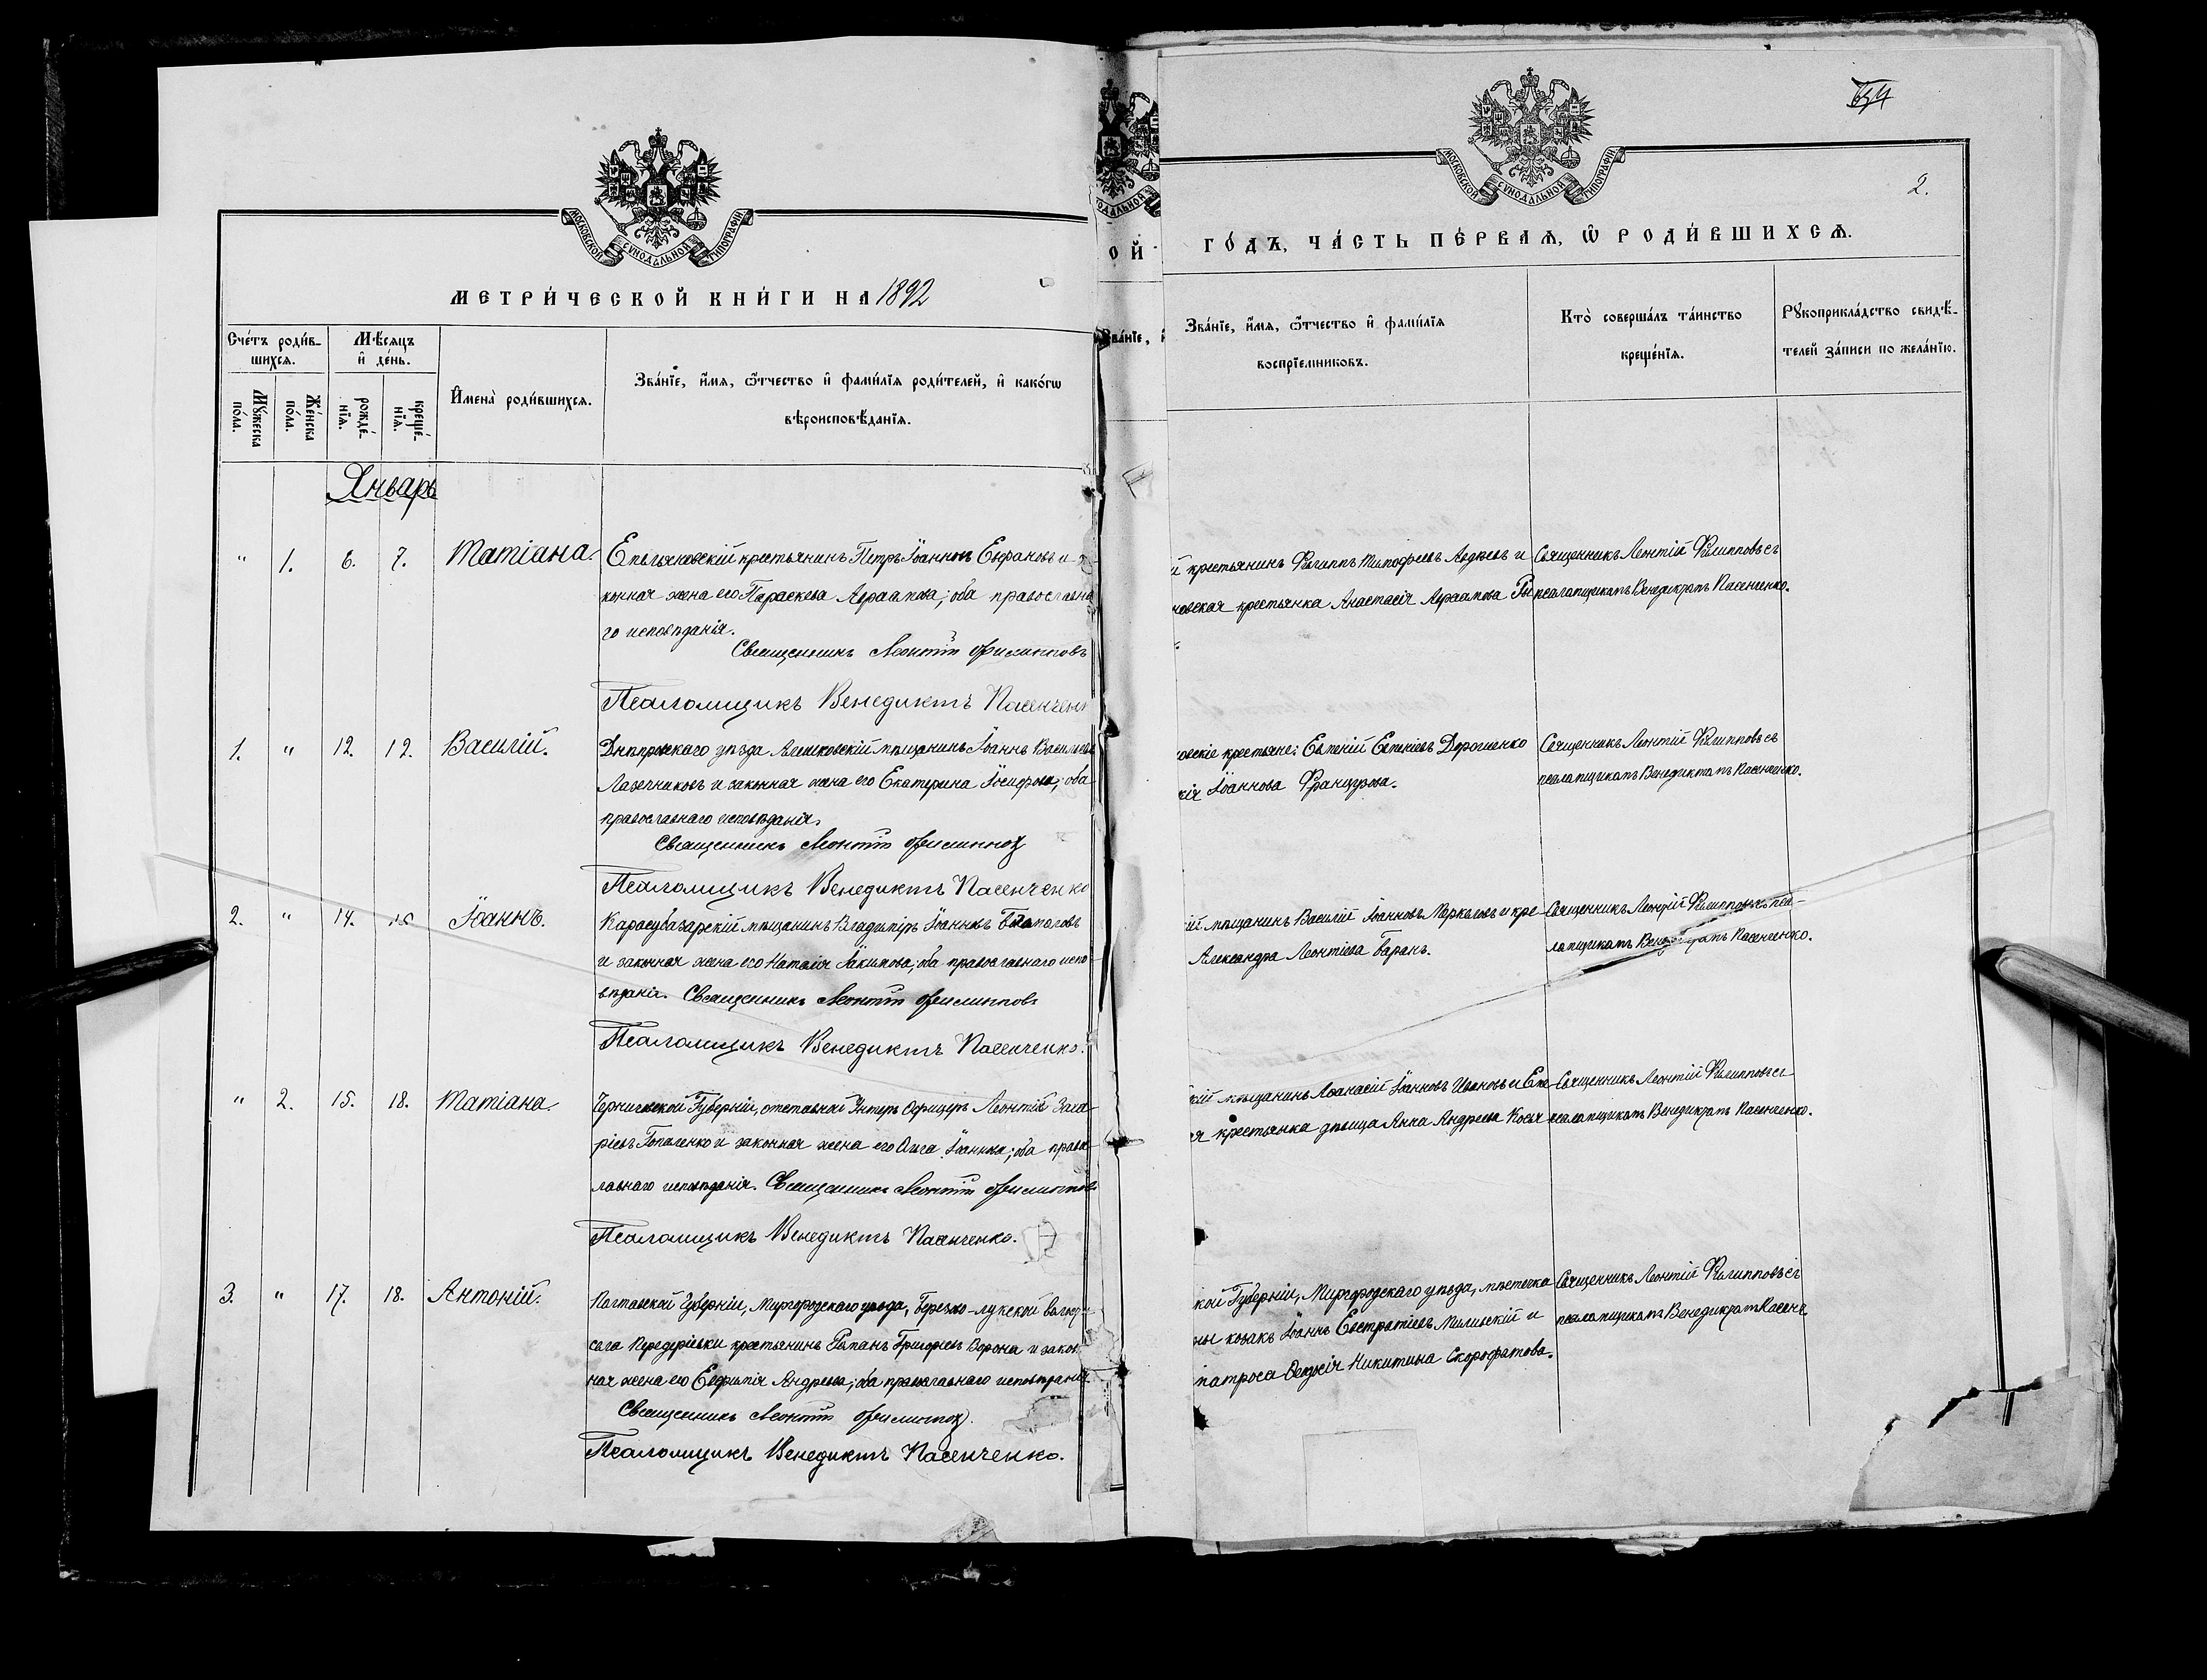 МОСКОВСКОЙ СѴНОДАЛЬНОЙ ТИПОГРАФІИ
МЕТРИ́ЧЕСКОЙ КНИ́ГИ НА 1892
Сче́тъ роди́в-
шихсѧ.
Мѣ́сяцъ
и҆ де́нь.
И҆мена̀ роди́вшихсѧ.
Зва́нїе, и҆́мѧ, ѻ҆́тчество и҆ фами́лїѧ роди́телей, и҆ како́гѡ
вѣроисповѣ́данїѧ.
Мꙋ́жеска
по́ла.
Же́нска
по́ла.
рожде́-
нїѧ.
креще́-
нїѧ.
Январь
" 1. 6. 7. Татіана.
крестьянинъ Петръ Іоанновъ и за-
конная жена его Параскева; оба православна-
го исповѣданія.
Священникъ Леонтій Филипповъ
Псаломщикъ Венедиктъ Пасенченк
1. " 12. 12. Василій.
Днѣпровскаго уѣзда Алешковскій мѣщанинъ Іоаннъ Васильевъ
и законная жена его Екатерина Іосифова; оба
православнаго исповѣданія.
Священникъ Леонтій Филипповъ
Псаломщикъ Венедиктъ Пасенченко
2. " 14. Іоаннъ.
Карасубазарскій мѣщанинъ Владиміръ Іоанновъ
и законная жена его Наталія Іакимова; оба православнаго испо-
вѣданія. Священникъ Леонтій Филипповъ
Псаломщикъ Венедиктъ Пасенченко.
" 2. 15. 18. Татіана.
Черниговской Губерніи, отставной Унтеръ Офицеръ Леонтій Заха-
ріевъ и законная жена его Іоаннова; оба право-
лавнаго исповѣданія. Священникъ Леонтій Филипповъ
Псаломщикъ Венедиктъ Пасенченко.
3. " 17. 18. Антоній.
Полтавской Губерніи, Миргородскаго уѣзда, Березово-лукской волости
села крестьянинъ Романъ Григорьевъ Ворона и закон-
ная жена его Евфимія Андреева; оба православнаго исповѣданія.
Священникъ Леонтій Филипповъ.
Псаломщикъ Венедиктъ Пасенченко.
ОДАЛЬНОЙ
ОЙ
Зва́нїе, и҆
МОСКОВСКОЙ СѴНОДАЛЬНОЙ ТИПОГРАФІИ
2.
ГО́ДЪ, ЧА́СТЬ ПЕ́РВАѦ, Ѡ҆ РОДИ́ВШИХСѦ.
Зва́нїе, и҆́мѧ, ѻ҆́тчество и҆ фами́лїѧ
воспрїе́мниковъ.
Кто̀ соверша́лъ та́инство
креще́нїѧ.
Рꙋкоприкла́дство свидѣ́-
телей за́писи по жела́нїю.
й крестьянинъ Филиппъ Тимофеевъ Авдѣевъ и
новская крестьянка Анастасія
Священникъ Леонтій Филипповъ съ
псаломщикомъ Венедиктомъ Пасенченко.
овскіе крестьяне: Евгеній Евгеніевъ Дорошенко
кія Іоаннова Францурова.
Священникъ Леонтій Филипповъ съ
псаломщикомъ Венедиктомъ Пасенченко.
ій мѣщанинъ Василій Іоанновъ Меркеловъ и кре-
Александра Леонтіева Баранъ.
Священникъ Леонтій Филипповъ съ пса-
ломщикомъ Венедиктомъ Пасенченко.
кій мѣщанинъ Афанасій Іоанновъ Ивановъ и
ая крестьянка дѣвица Анна Андреева
Священникъ Леонтій Филипповъ съ
псаломщикомъ Венедиктомъ Пасенченко.
кой Губерніи, Миргородскаго уѣзда, мѣстечка
ны козакъ Іоаннъ Евстратіевъ Милинскій и
матроса Никитина Скорофатова.
Священникъ Леонтій Филипповъ съ
псаломщикомъ Венедиктомъ Пасенч